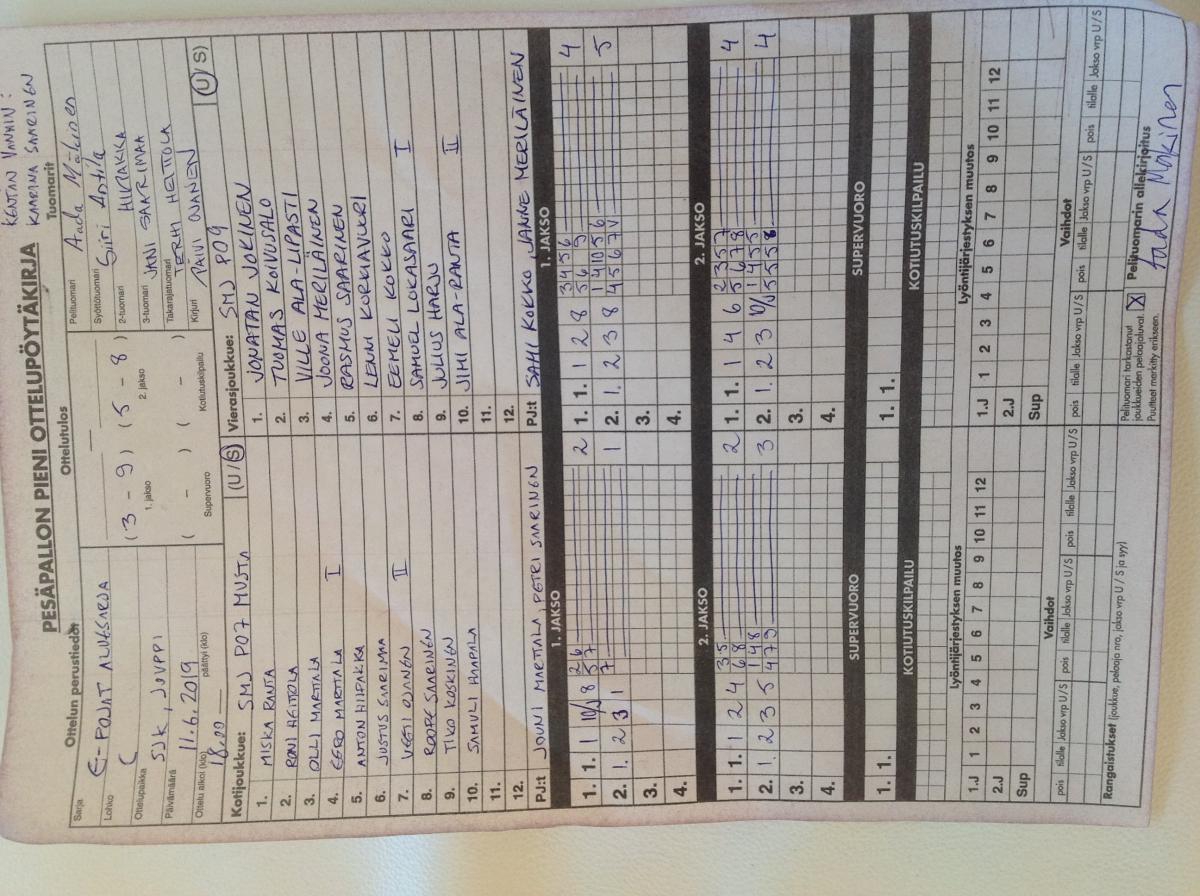 KENTÄN VANHIN:
KATARIINA SAARINEN
PESÄPALLON PIENI OTTELUPÖYTÄKIRJA
Ottelun perustiedot
Ottelutulos
Tuomarit
Sarja E-POJAT ALUESARJA
Lohko C
Ottelupaikka SJK, JOUPPI
Päivämäärä 11.6.2019
Ottelu alkoi (klo) 18.00 päättyi (klo)
(3 - 9) (5 - 8)
1. jakso 2. jakso
( - ) ( - )
Supervuoro Kotiutuskilpailu
Pelituomari Aada Mäkinen
Syöttötuomari Siiri Antila
2-tuomari HIIPAKKA
3-tuomari JANI SAARIMAA
Takarajatuomari ERHI HEITTOLA
Kirjuri PÄIVI OJANEN
Kotijoukkue: SMJ P07 MUSTA (U/S)
1. MISKA RANTA
2. RONI HEITTOLA
3. OLLI MARTTALA
4. EERO MARTTALA I
5. ANTON HIIPAKKA
6. JUSTUS SAARIMAA
7. VEETI OJANEN II
8. ROOPE SAARINEN
9. TIKO KOSKINEN
10. SAMULI HAAPALA
11.
12.
PJ:t JOUNI MARTTALA, PETRI SAARINEN
Vierasjoukkue: SMJ P09 (U/S)
1. JONATAN JOKINEN
2. TUOMAS KOIVUPALO
3. VILLE ALA-LIPASTI
4. JOONA MERILÄINEN
5. RASMUS SAARINEN
6. LENNI KORKIAVUORI
7. EEMELI KOKKO
8. SAMUEL LOKASAARI I
9. JULIUS HARJU
10. JIMI ALA-RANTA II
11.
12.
PJ:t SAMI KOKKO, JANNE MERILÄINEN
1. JAKSO 1. JAKSO
1. 1. 1 10/J 8 2 6 5 7 2
2. 1. 2 3 1 7 1
3.
4.
1. 1. 1 2 8 3 4 5 6 4
2. 1. 2 3 8 1 4 10 5 6 4 5 6 7 V 5
3.
4.
2. JAKSO 2. JAKSO
1. 1. 1 2 4 3 5 6 8 2
2. 1. 2 3 5 1 4 8 4 7 9 3
3.
4.
1. 1. 1 4 6 2 3 5 7 5 6 7 8 4
2. 1. 2 3 10/J 1 4 5 5 5 5 5 8 4
3.
4.
SUPERVUORO SUPERVUORO
1. 1.
1. 1.
KOTIUTUSKILPAILU KOTIUTUSKILPAILU
Lyöntijärjestyksen muutos Lyöntijärjestyksen muutos
1.J 1 2 3 4 5 6 7 8 9 10 11 12
2.J
Sup
1.J 1 2 3 4 5 6 7 8 9 10 11 12
2.J
Sup
Vaihdot Vaihdot
pois tilalle Jakso vrp U/S pois tilalle Jakso vrp U/S pois tilalle Jakso vrp U/S
pois tilalle Jakso vrp U/S pois tilalle Jakso vrp U/S pois tilalle Jakso vrp U/S
Rangaistukset (joukkue, pelaaja nro, jakso vrp U / S ja syy)
Pelituomari tarkastanut
joukkueiden pelaajaluvat. X
Puutteet merkitty erikseen.
Pelituomarin allekirjoitus
Aada Mäkinen